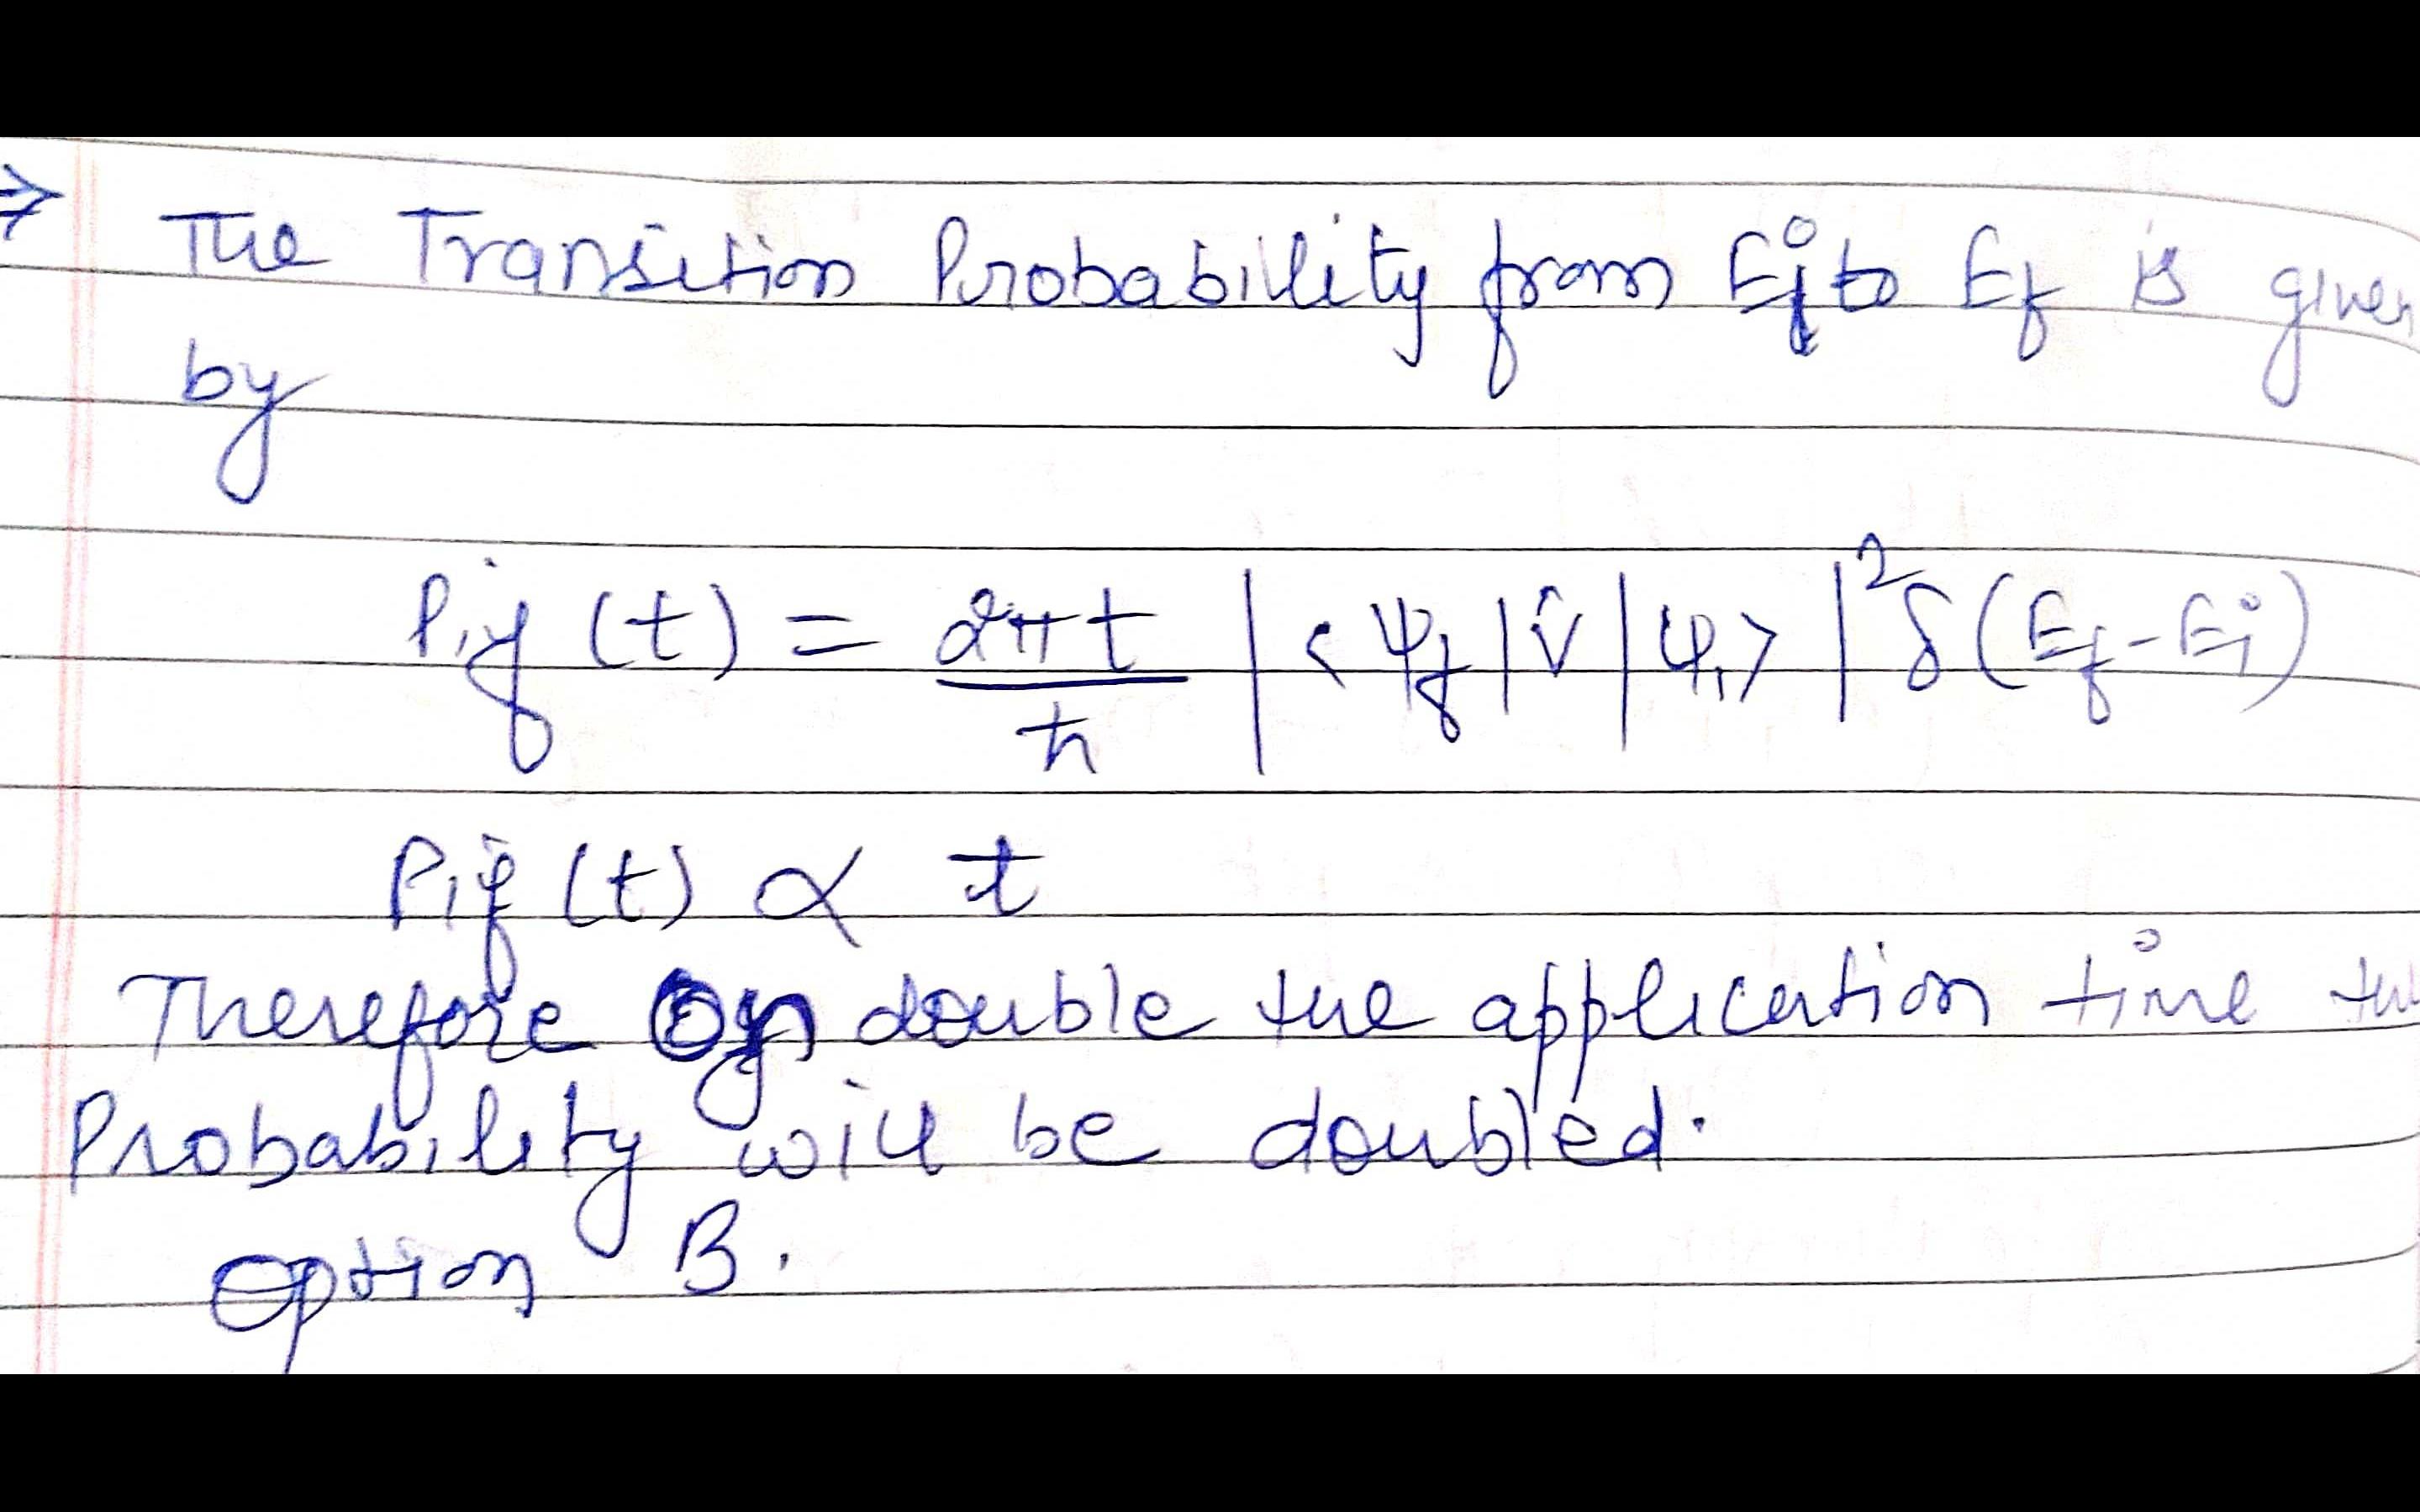 ⇒ The Transition Probability from Ei to Ef is given
by
Pif (t) = 2πt/ħ |<ψf|V̂|ψi>|² δ(Ef-Ei)
Pif (t) ∝ t
Therefore on double the application time
Probability will be doubled.
option B.